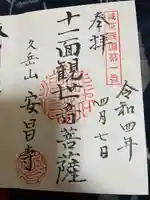 奉拝
令和四年
四月七日
十一面観世音菩薩
久岳山
安昌寺